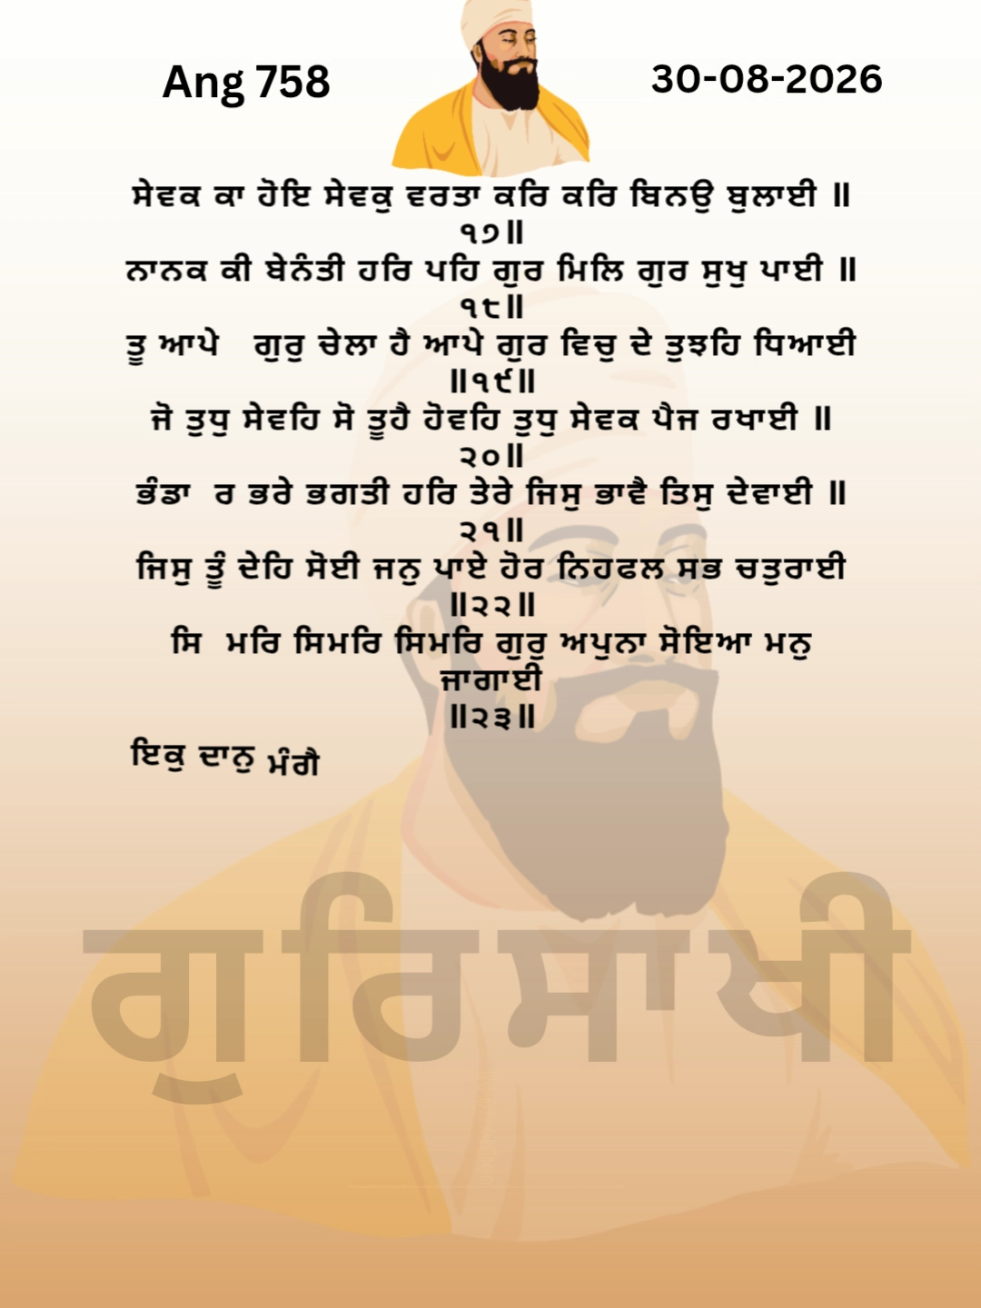 Ang 758
30-08-2026
ਸੇਵਕ ਕਾ ਹੋਇ ਸੇਵਕੁ ਵਰਤਾ ਕਰਿ ਕਰਿ ਬਿਨਉ ਬੁਲਾਈ ॥
੧੭॥
ਨਾਨਕ ਕੀ ਬੇਨੰਤੀ ਹਰਿ ਪਹਿ ਗੁਰ ਮਿਲਿ ਗੁਰ ਸੁਖੁ ਪਾਈ ॥
੧੮॥
ਤੂ ਆਪੇ ਗੁਰੁ ਚੇਲਾ ਹੈ ਆਪੇ ਗੁਰ ਵਿਚੁ ਦੇ ਤੁਝਹਿ ਧਿਆਈ
॥੧੯॥
ਜੋ ਤੁਧੁ ਸੇਵਹਿ ਸੋ ਤੂਹੈ ਹੋਵਹਿ ਤੁਧੁ ਸੇਵਕ ਪੈਜ ਰਖਾਈ ॥
੨੦॥
ਭੰਡਾ ਰ ਭਰੇ ਭਗਤੀ ਹਰਿ ਤੇਰੇ ਜਿਸੁ ਭਾਵੈ ਤਿਸੁ ਦੇਵਾਈ ॥
੨੧॥
ਜਿਸੁ ਤੂੰ ਦੇਹਿ ਸੋਈ ਜਨੁ ਪਾਏ ਹੋਰ ਨਿਹਫਲ ਸਭ ਚਤੁਰਾਈ
॥੨੨॥
ਸਿ ਮਰਿ ਸਿਮਰਿ ਸਿਮਰਿ ਗੁਰੁ ਅਪੁਨਾ ਸੋਇਆ ਮਨੁ
ਜਾਗਾਈ
॥੨੩॥
ਇਕੁ ਦਾਨੁ ਮੰਗੈ
ਗੁਰਿਸਾਖੀ